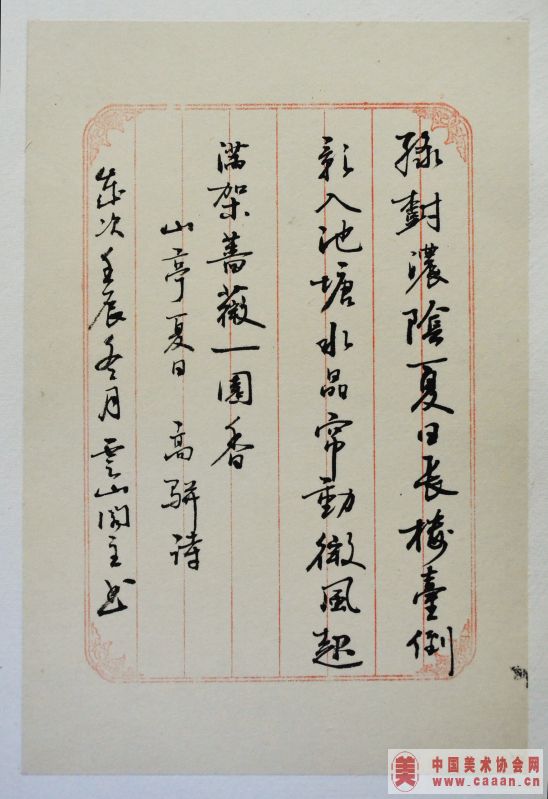 綠樹濃陰夏日長樓臺倒
影入池塘水晶帘動微風起
滿架薔薇一園香
山亭夏日 高駢詩
歲次壬辰冬月雲山閣主書
中国美术协会网
www.caaan.cn
美